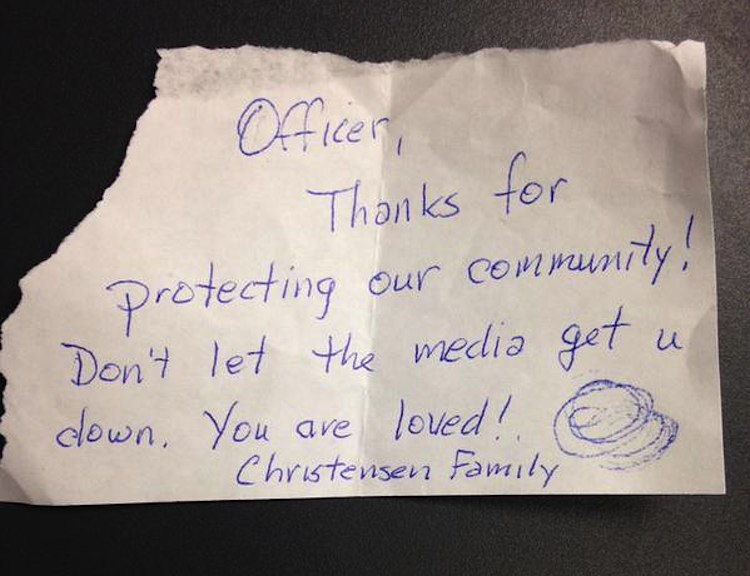 Officer,
Thanks for
protecting our community!
Don't let the media get u
down. You are loved!
Christensen Family